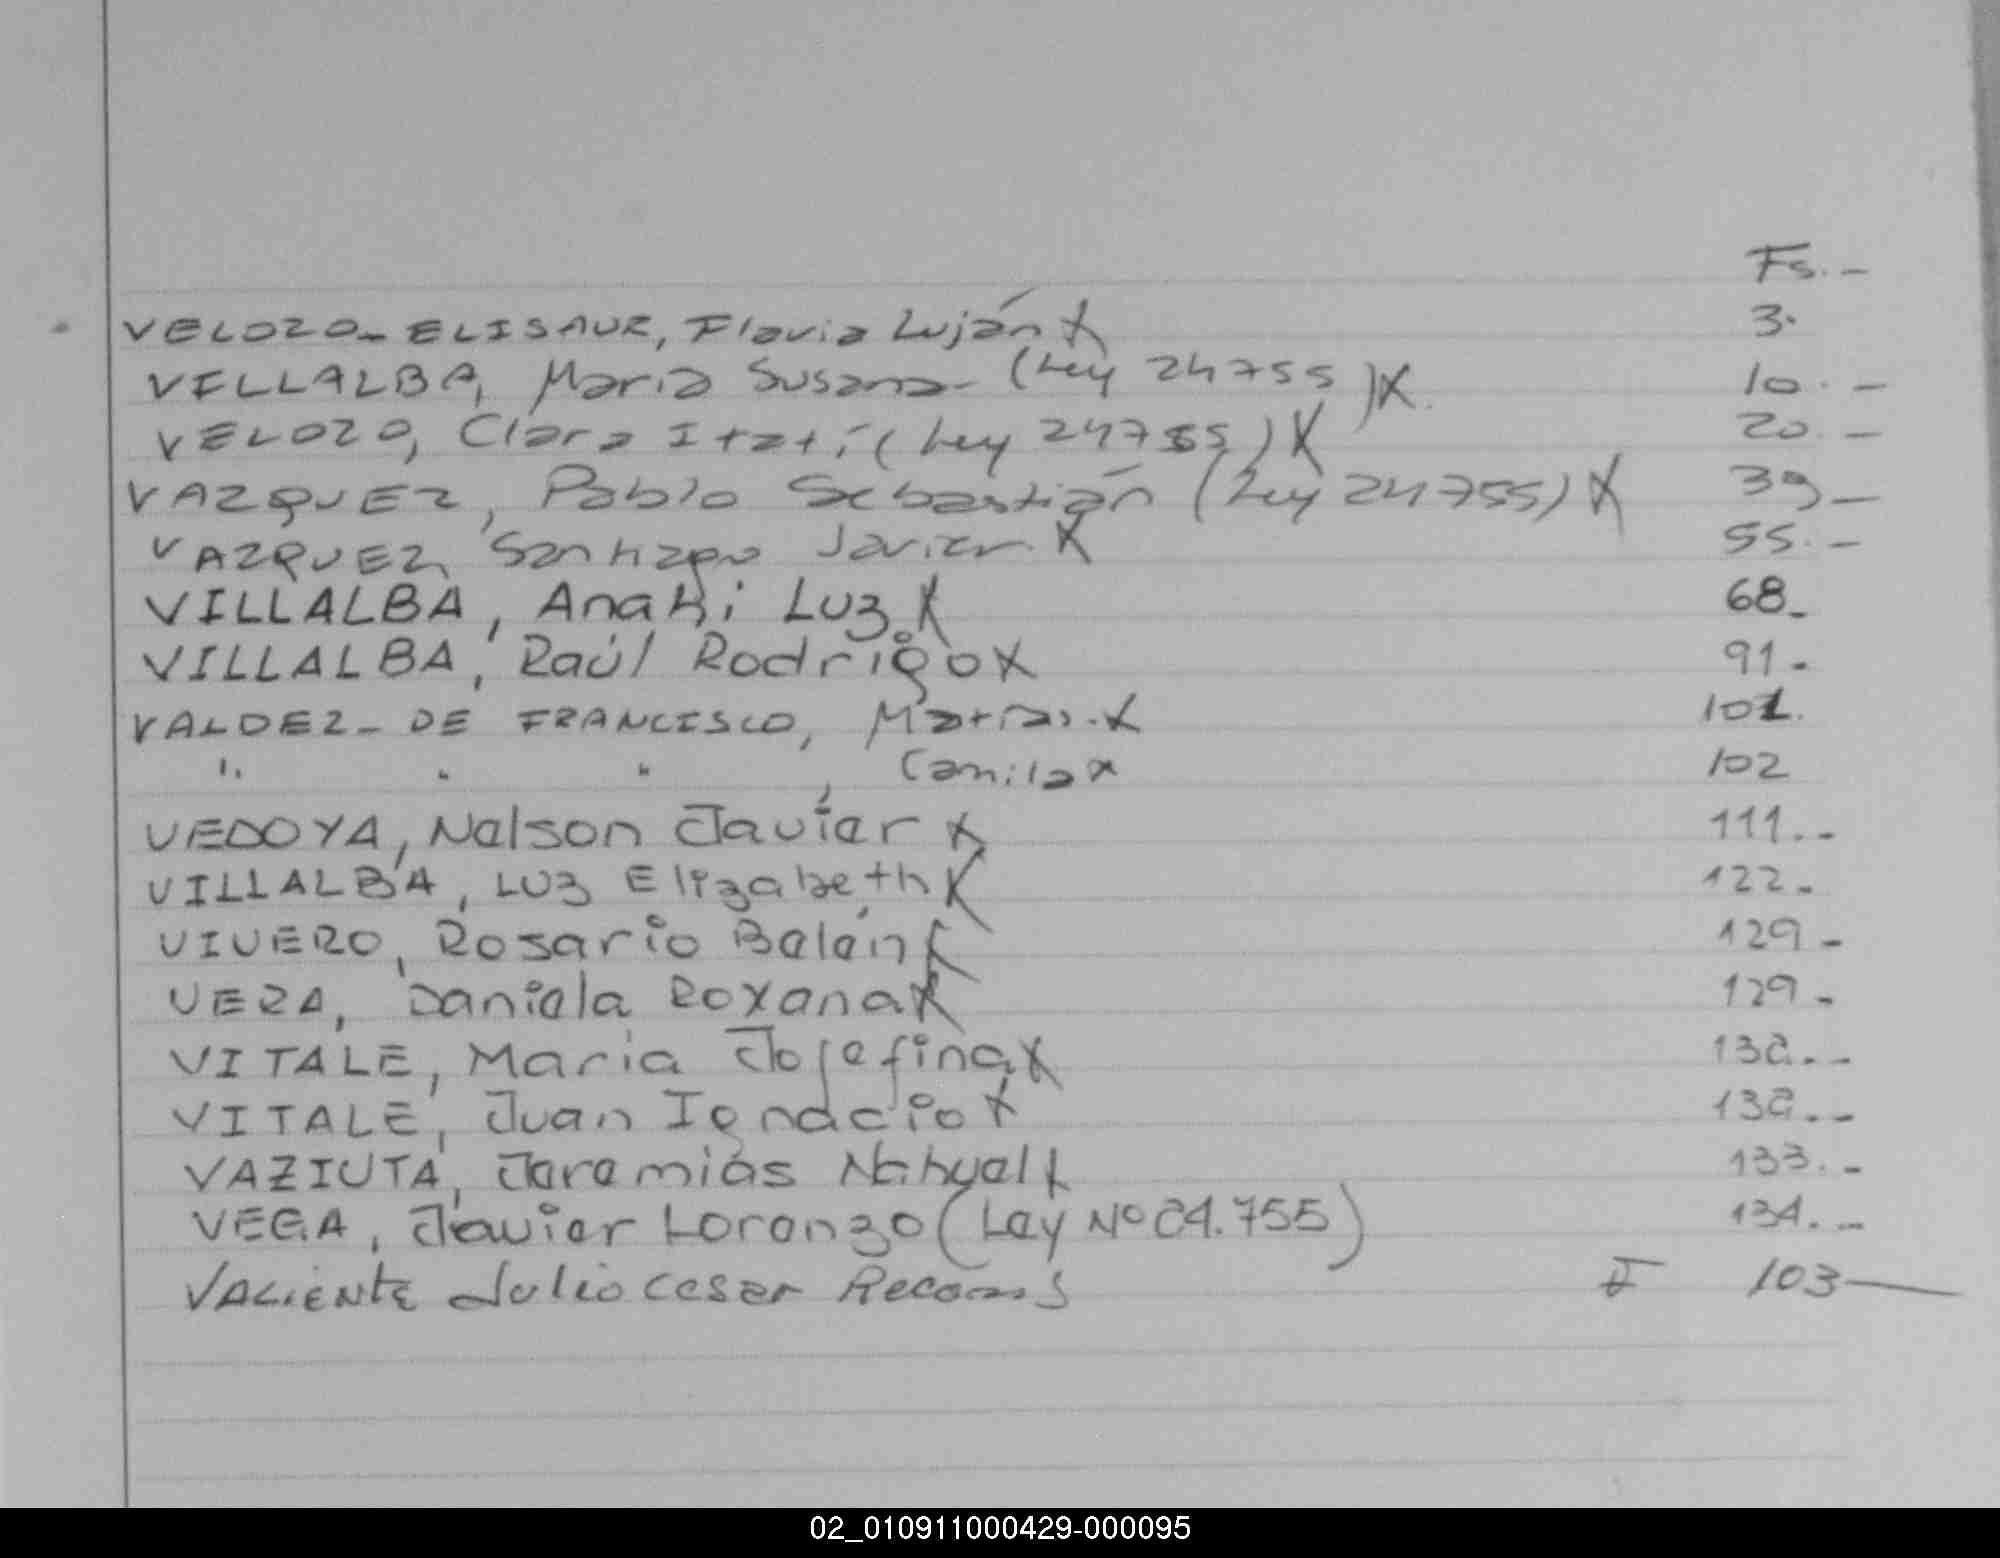 Fs.-
VELOZO-ELISAUR, Flavia Luján X 3.
VILLALBA, Maria Susana- (Ley 24755) X. 10.-
VELOZO, Clara Itatí (Ley 24755) X 20.-
VAZQUEZ, Pablo Sebastián (Ley 24755) X 39-
VAZQUEZ, Santiago Javier. X 55.-
VILLALBA, Anahi Luz. X 68-
VILLALBA, Raúl Rodrigo X 91-
VALDEZ- DE FRANCISCO, Matías. X 101.
" " " , Camila x 102
VEDOYA, Nelson Javier X 111.-
VILLALBA, Luz Elizabeth X 122-
VIVERO, Rosario Belén X 129-
VERA, Daniela Roxana X 129-
VITALE, Maria Josefina X 132.-
VITALE, Juan Ignacio X 132.-
VAZIUTA, Jeremías Nahuel X 133.-
VEGA, Javier Lorenzo (Ley Nº 24.755) 134.-
VALIENTE Julio Cesar 103-
02_010911000429-000095